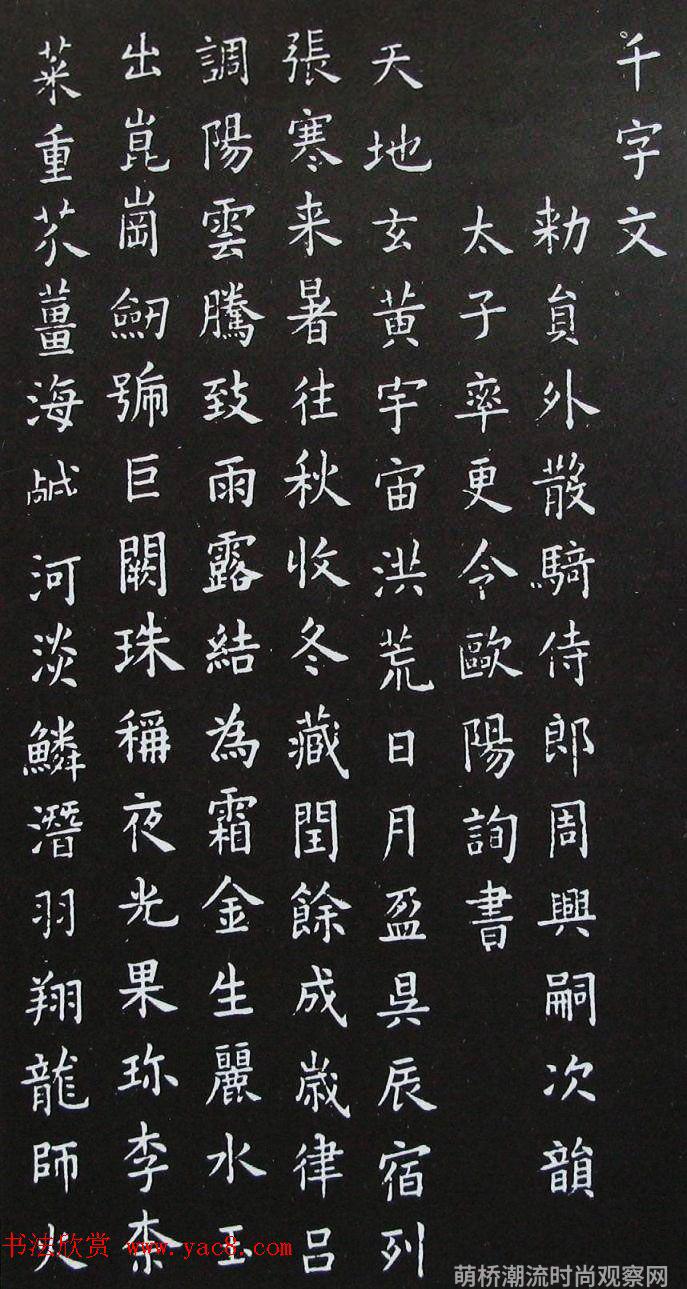 千字文
勑員外散騎侍郎周興嗣次韻
太子率更令歐陽詢書
天地玄黃宇宙洪荒日月盈昃辰宿列
張寒来暑往秋收冬藏閏餘成歲律呂
調陽雲騰致雨露結為霜金生麗水玉
出崑崗劒號巨闕珠稱夜光果珎李柰
菜重芥薑海鹹河淡鱗潛羽翔龍師火
书法欣赏 www.yac8.com
萌桥潮流时尚观察网